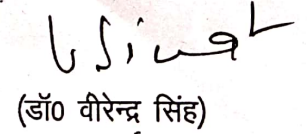 (डॉ0 वीरेन्द्र सिंह)